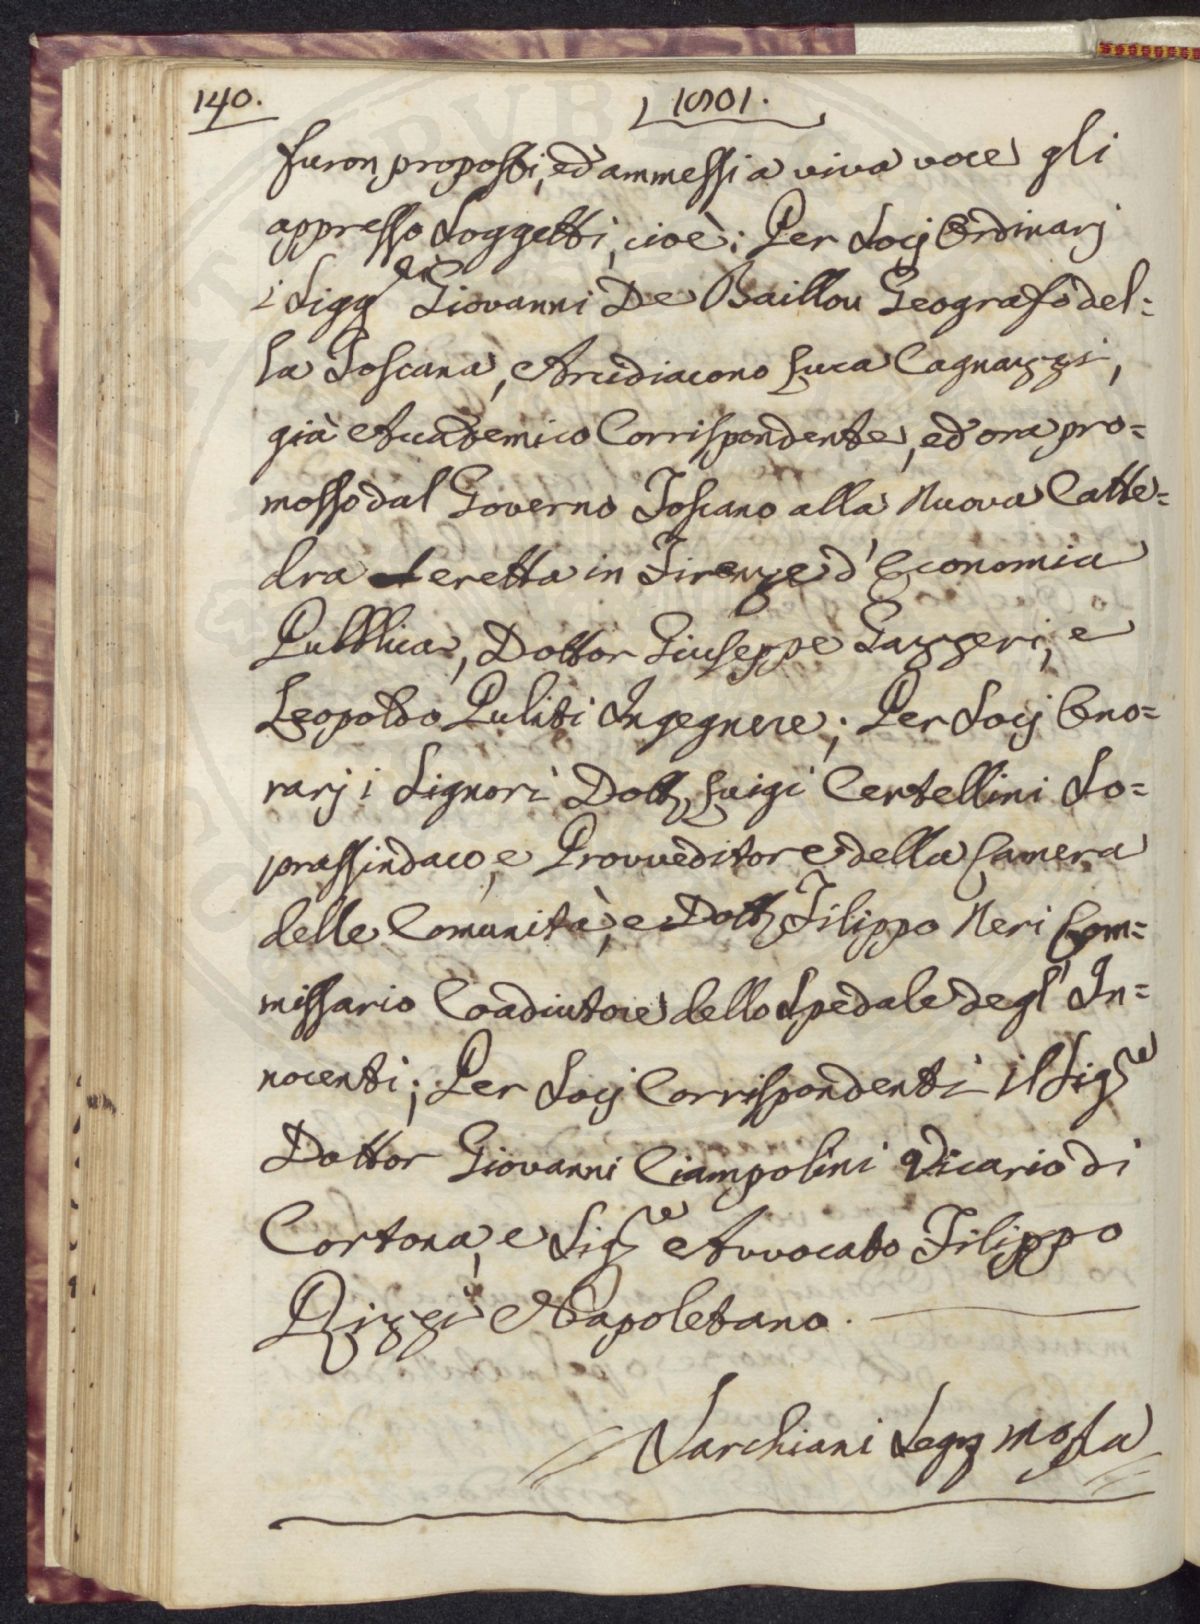 140.
1801.
furon proposti, ed ammessi a viva voce gli
appresso Soggetti, cioè; Per Socj Ordinarj
i Sigg.ri Giovanni De Baillou Geografo del=
la Toscana, Arcidiacono Luca Cagnazzi,
già Accademico Corrispondente, ed ora pro=
mosso dal Governo Toscano alla Nuova Catte=
dra eretta in Firenze d'Economia
Pubblica, Dottor Giuseppe Gazzeri, e
Leopoldo Puliti Ingegnere; Per Socj Ono=
rarj i Signori Dott. Luigi Certellini So=
prassindaco, e Provveditore della Camera
delle Comunità, e Dott. Filippo Neri Com=
missario Coadiutore dello Spedale degl'In=
nocenti; Per Socj Corrispondenti il Sig.re
Dottor Giovanni Ciampolini Vicario di
Cortona, e Sig.re Avvocato Filippo
Rizzi Napoletano.
Sarchiani